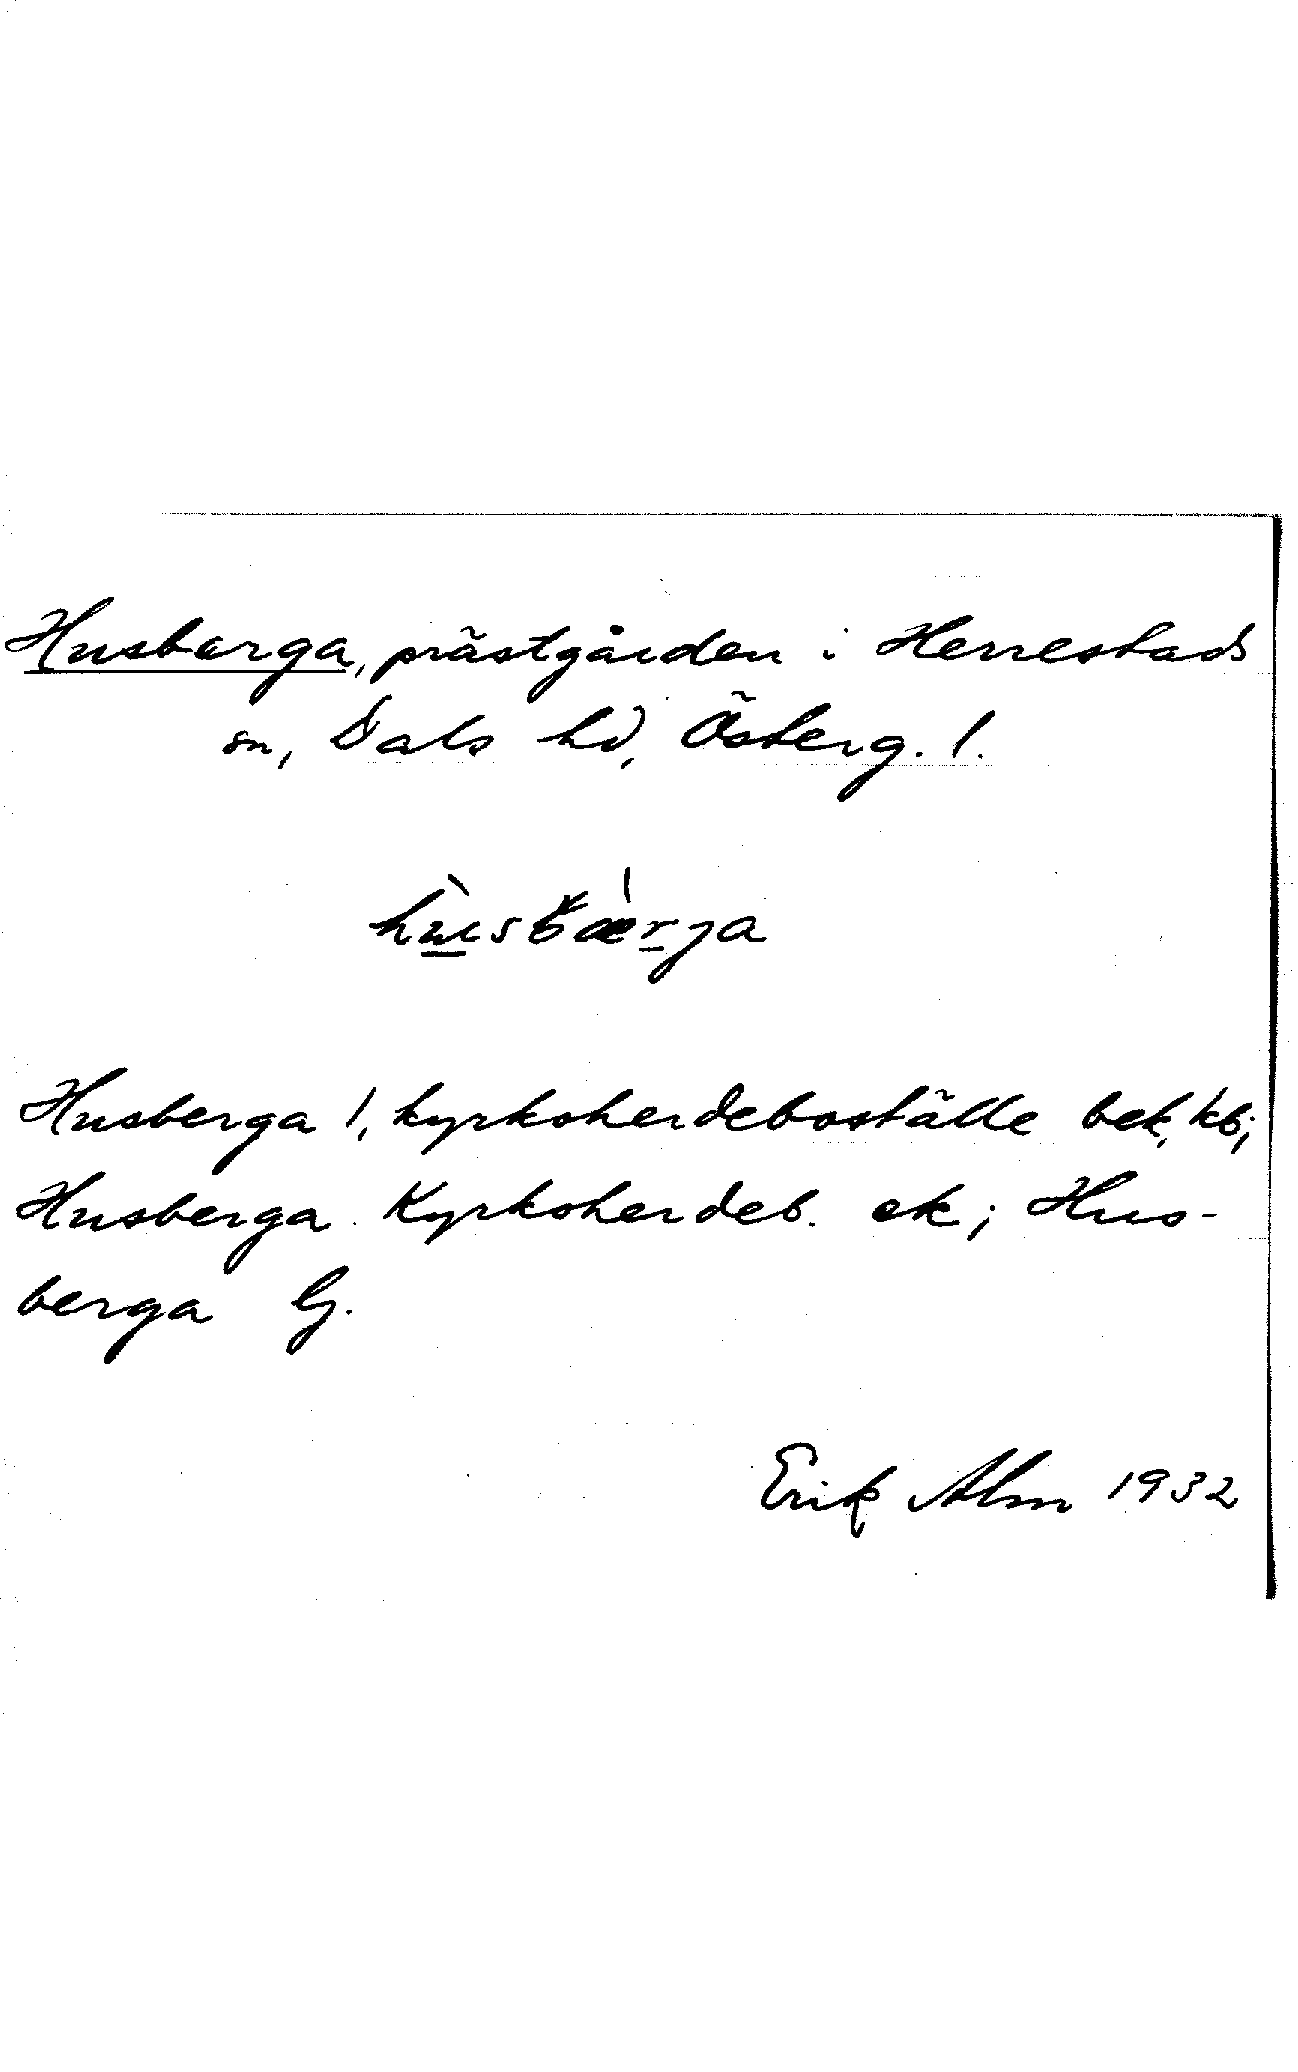 Husberga, prästgården i Herrestads
sn, Dals hd, Österg. l.
hùsbǽrja
Husberga 1, kyrkoherdeboställe bek, kb;
Husberga Kyrkoherdeb. ek; Hus-
berga G.
Erik Alm 1932